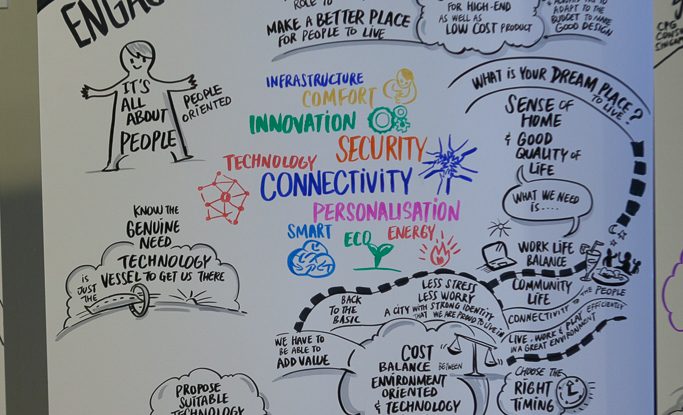 ENGAG
ROLE TO
MAKE A BETTER PLACE
FOR PEOPLE TO LIVE
FOR HIGH-END
AS WELL AS
LOW COST PRODUCT
ADAPT TO THE
BUDGET TO MAKE
GOOD DESIGN
IT'S
ALL
ABOUT
PEOPLE
PEOPLE
ORIENTED
INFRASTRUCTURE
COMFORT
INNOVATION
SECURITY
TECHNOLOGY
CONNECTIVITY
PERSONALISATION
SMART
ECO
ENERGY
WHAT IS YOUR DREAM PLACE
TO LIVE?
SENSE OF
HOME
& GOOD
QUALITY OF
LIFE
WHAT WE NEED
IS....
WORK LIFE
BALANCE
COMMUNITY
LIFE
CONNECTIVITY TO THE PEOPLE
LIVE, WORK & PLAY EFFICIENTLY
IN A GREAT ENVIRONMENT
KNOW THE
GENUINE
NEED
TECHNOLOGY
IS JUST THE VESSEL TO GET US THERE
BACK
TO THE
BASIC
LESS STRESS
LESS WORRY
A CITY WITH STRONG IDENTITY
THAT WE ARE PROUD TO LIVE IN
WE HAVE TO
BE ABLE TO
ADD VALUE
COST
BALANCE BETWEEN
ENVIRONMENT
ORIENTED
& TECHNOLOGY
CHOOSE THE
RIGHT
TIMING
PROPOSE
SUITABLE
TECHNOLOGY
CPG